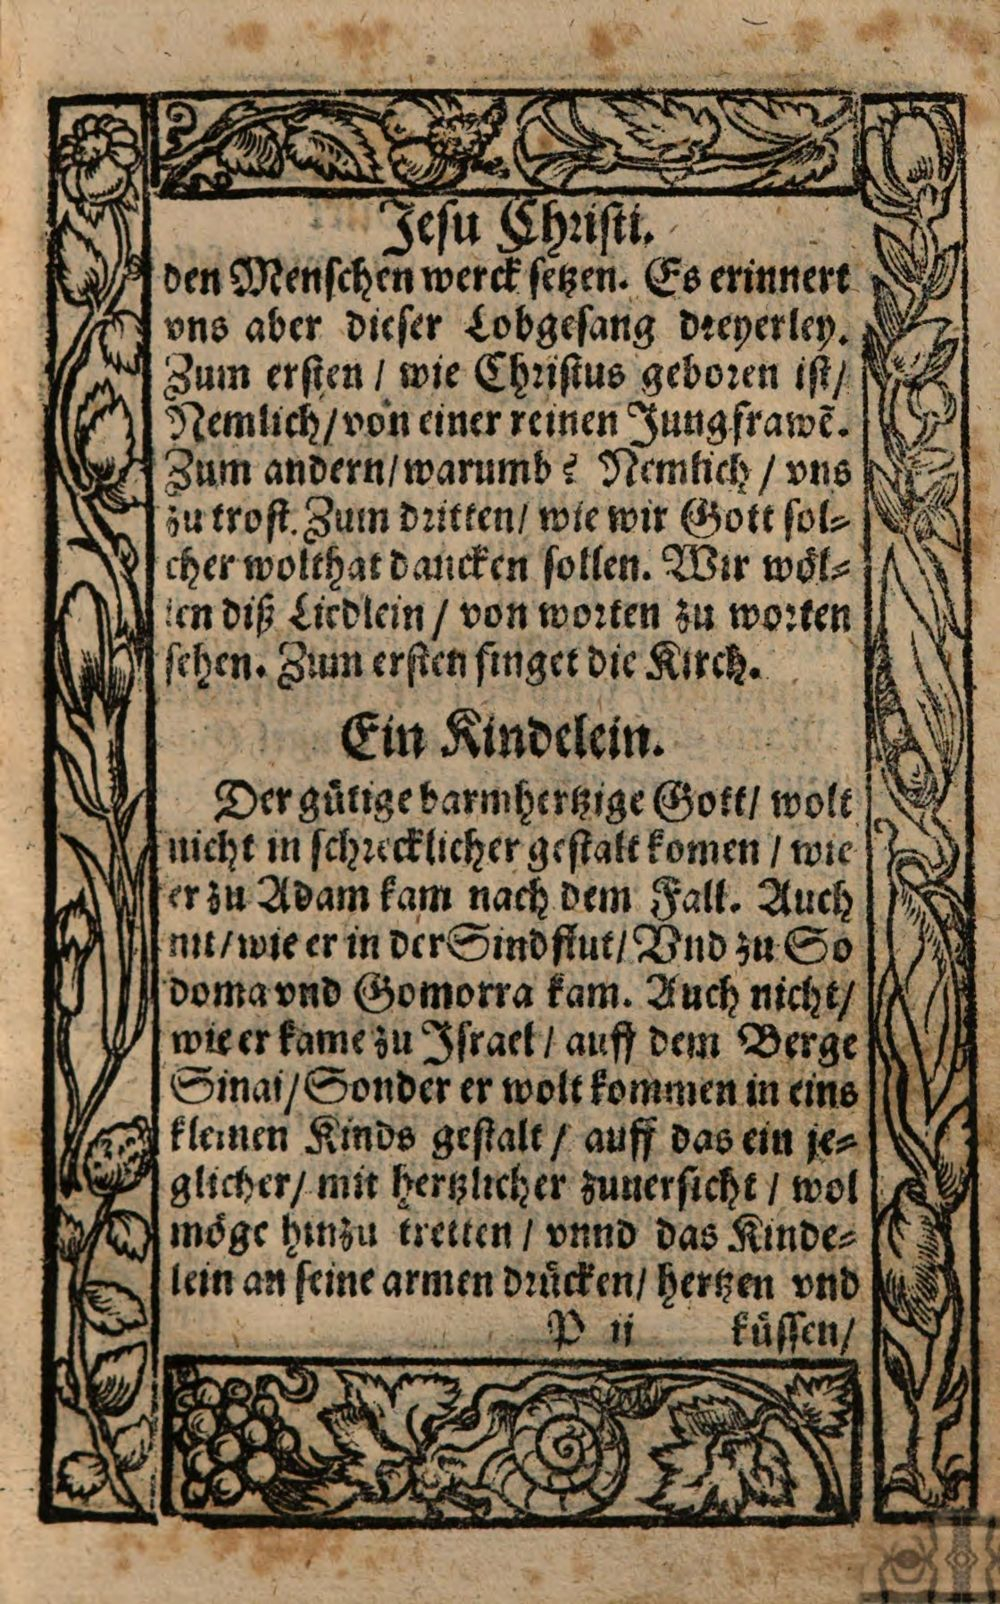 Jesu Christi.
den Menschen werck setzen. Es erinnert
vns aber dieser Lobgesang dreyerley.
Zum ersten / wie Christus geboren ist/
Nemlich/von einer reinen Jungfrawẽ.
Zum andern/warumb? Nemlich / vns
zu trost. Zum dritten/ wie wir Gott sol⸗
cher wolthat dancken sollen. Wir wöl⸗
len diß Liedlein / von worten zu worten
sehen. Zum ersten singet die Kirch.
Ein Kindelein.
Der gütige barmhertzige Gott/ wolt
nicht in schrecklicher gestalt komen / wie
er zu Adam kam nach dem Fall. Auch
nit/wie er in der Sindflut/ Vnd zu So
doma vnd Gomorra kam. Auch nicht/
wie er kame zu Israel / auff dem Berge
Sinai/Sonder er wolt kommen in eins
kleinen Kinds gestalt / auff das ein je⸗
glicher/ mit hertzlicher zuuersicht / wol
möge hinzu tretten / vnnd das Kinde⸗
lein an seine armen drücken/ hertzen vnd
P ij küssen/